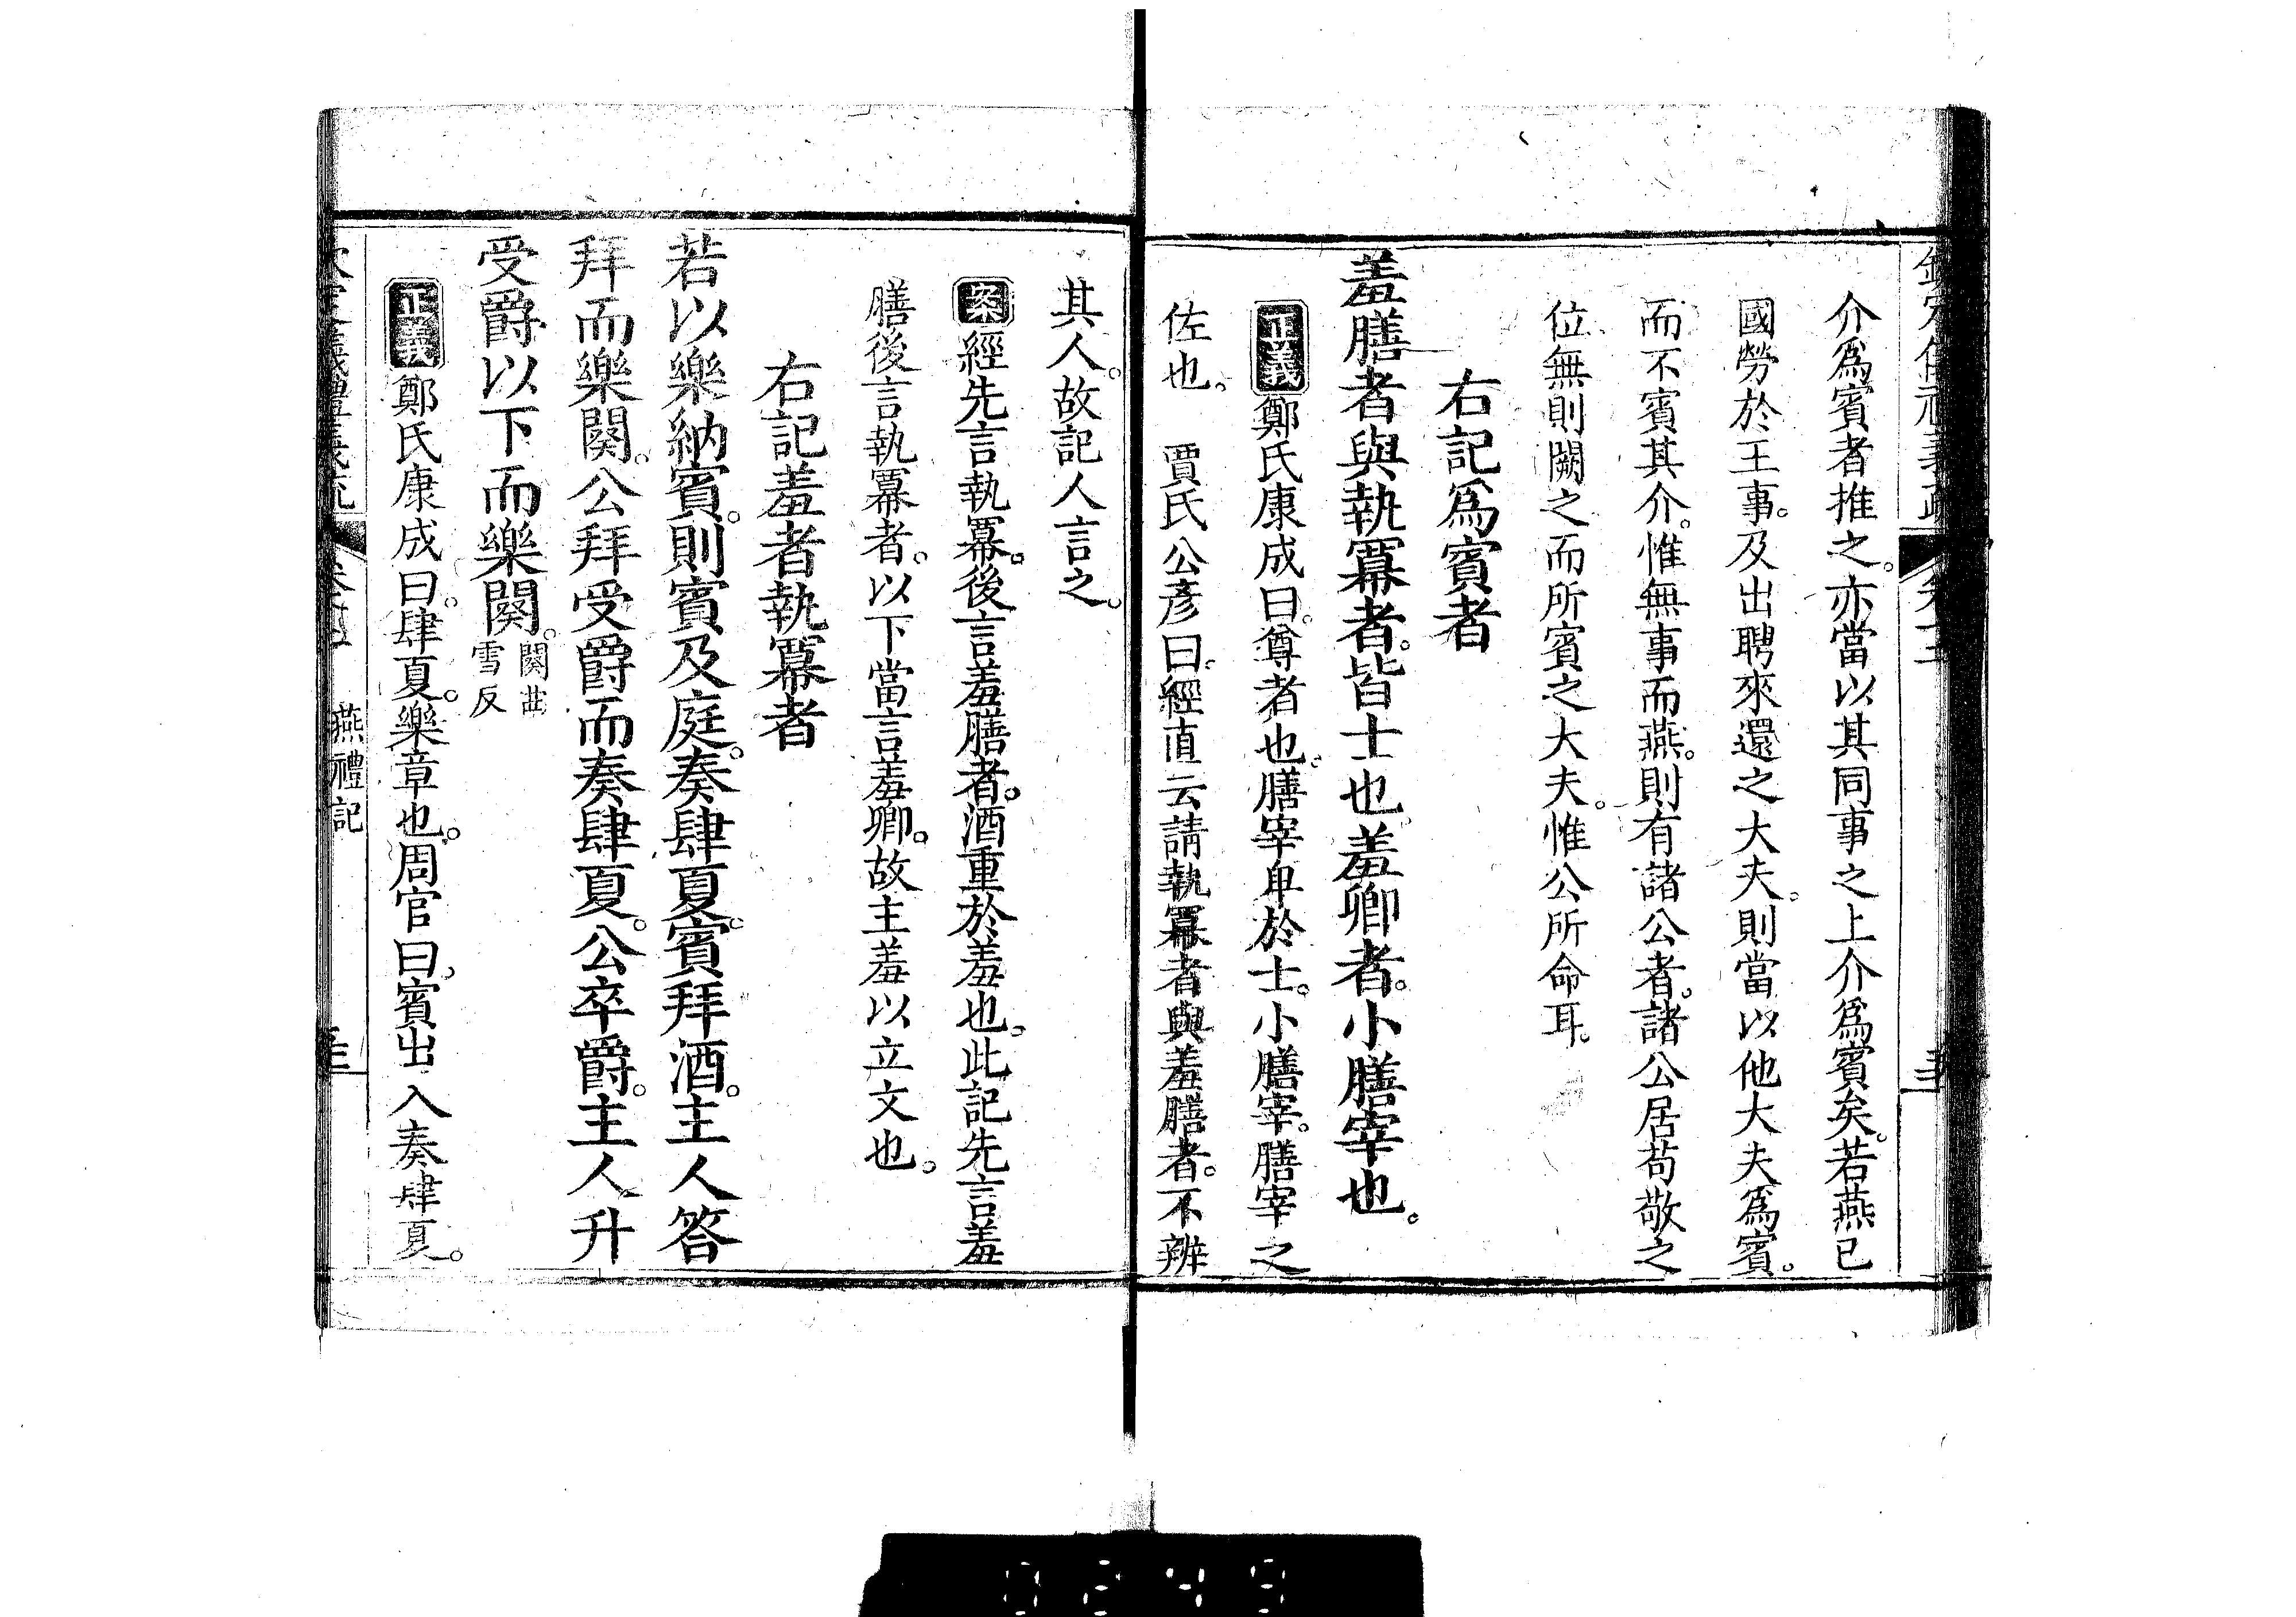 介爲賓者推之。亦當以其同事之上介爲賓矣。若燕已
國勞於王事。及出聘來還之大夫。則當以他大夫爲賓。
而不賓其介。惟無事而燕。則有諸公者。諸公居苟敬之
位無則闕之而所賓之大夫。惟公所命耳。
右記爲賓者
羞膳者與執冪者。皆士也。羞卿者。小膳宰也。
正義鄭氏康成曰。尊者也。膳宰卑於士。小膳宰。膳宰之
佐也。 賈氏公彥曰。經直云請執冪者與羞膳者。不辨
其人。故記人言之。
案經先言執冪。後言羞膳者。酒重於羞也。此記先言羞
膳後言執冪者。以下當言羞卿。故主羞以立文也。
右記羞者執冪者
若以樂納賓。則賓及庭。奏肆夏。賓拜酒。主人答
拜而樂闋。公拜受爵而奏肆夏。公卒爵。主人升
受爵以下而樂闋。闋
雪反
正義鄭氏康成曰。肆夏。樂章也。周官曰。賓出入奏肆夏。
燕禮記